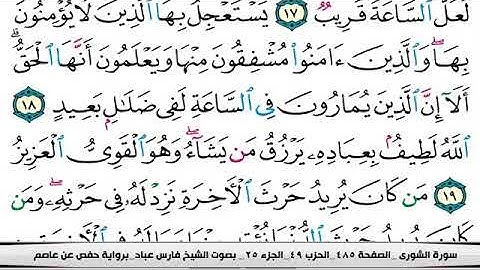 لَعَلَّ ٱلسَّاعَةَ قَرِيبٌ ١٧ يَسْتَعْجِلُ بِهَا ٱلَّذِينَ لَا يُؤْمِنُونَ
بِهَا ۖ وَٱلَّذِينَ ءَامَنُوا۟ مُشْفِقُونَ مِنْهَا وَيَعْلَمُونَ أَنَّهَا ٱلْحَقُّ ۗ
أَلَآ إِنَّ ٱلَّذِينَ يُمَارُونَ فِى ٱلسَّاعَةِ لَفِى ضَلَـٰلٍۭ بَعِيدٍ ١٨
ٱللَّهُ لَطِيفٌۢ بِعِبَادِهِۦ يَرْزُقُ مَن يَشَآءُ ۖ وَهُوَ ٱلْقَوِىُّ ٱلْعَزِيزُ
١٩ مَن كَانَ يُرِيدُ حَرْثَ ٱلْـَٔاخِرَةِ نَزِدْ لَهُۥ فِى حَرْثِهِۦ ۖ وَمَن
كَانَ يُرِيدُ حَرْثَ
سورة الشورى _ الصفحة ٤٨٥ _ الحزب ٤٩ _ الجزء ٢٥ _ بصوت الشيخ فارس عباد _ برواية حفص عن عاصم